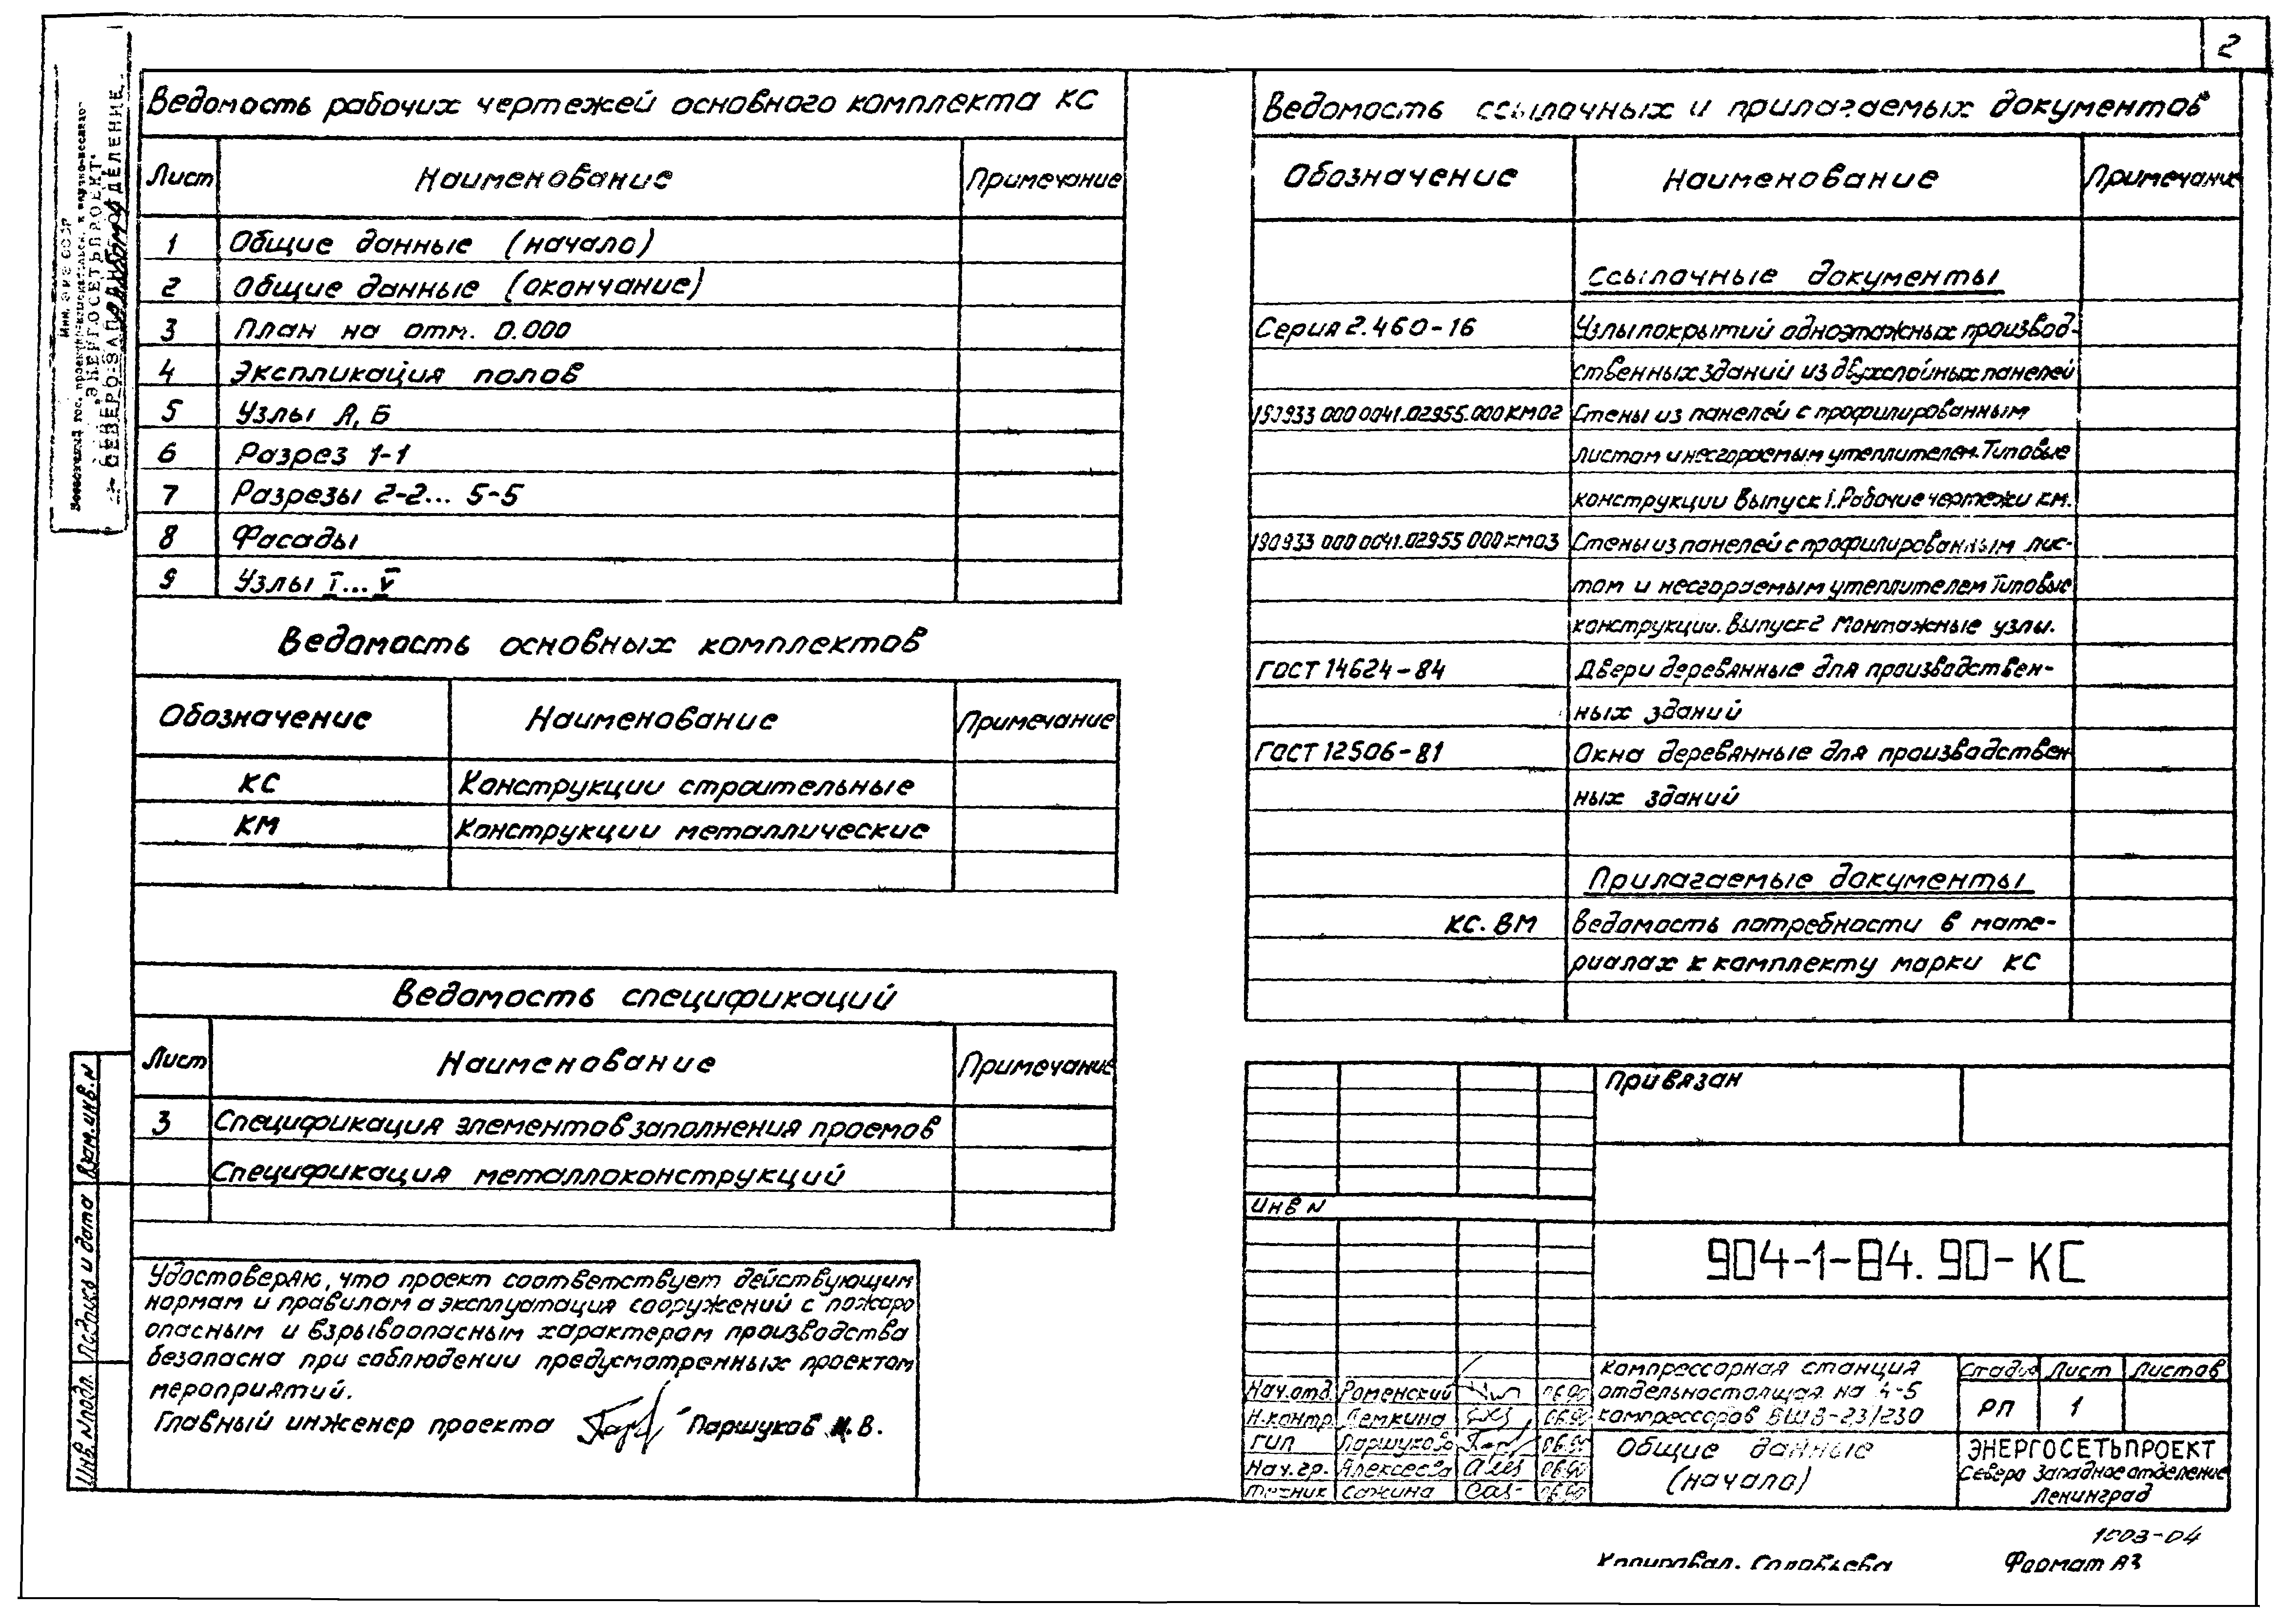 2
Мин. Э и Э СССР
"ЭНЕРГОСЕТЬПРОЕКТ"
СЕВЕРО-ЗАПАДНОЕ ОТДЕЛЕНИЕ
Ведомость рабочих чертежей основного комплекта КС
Лист Наименование Примечание
1 Общие данные (начало)
2 Общие данные (окончание)
3 План на отм. 0.000
4 Экспликация полов
5 Узлы А, Б
6 Разрез 1-1
7 Разрезы 2-2... 5-5
8 Фасады
9 Узлы I... V
Ведомость основных комплектов
Обозначение Наименование Примечание
КС Конструкции строительные
КМ Конструкции металлические
Ведомость спецификаций
Лист Наименование Примечание
3 Спецификация элементов заполнения проемов
Спецификация металлоконструкций
Удостоверяю, что проект соответствует действующим
нормам и правилам а эксплуатация сооружений с пожаро
опасным и взрывоопасным характером производства
безопасна при соблюдении предусмотренных проектом
мероприятий.
Главный инженер проекта Паршуков И.В.
Инв. N подл. Подпись и дата Взам. инв. N
Ведомость ссылочных и прилагаемых документов
Обозначение Наименование Примечание
Ссылочные документы
Серия 2.460-16 Узлы покрытий одноэтажных производ-
ственных зданий из двухслойных панелей
000 0041.02955.000 КМ02 Стены из панелей с профилированным
листом и несгораемым утеплителем. Типовые
конструкции Выпуск 1. Рабочие чертежи КМ.
000 0041.02955 000 КМ03 Стены из панелей с профилированным лис-
том и несгораемым утеплителем Типовые
конструкции. Выпуск 2 Монтажные узлы.
ГОСТ 14624-84 Двери деревянные для производствен-
ных зданий
ГОСТ 12506-81 Окна деревянные для производствен
ных зданий
Прилагаемые документы
КС. ВМ Ведомость потребности в мате-
риалах к комплекту марки КС
Привязан
Инв N
904-1-84.90-КС
Компрессорная станция
отдельностоящая на 4-5
компрессоров ВШВ-2,3/230
Стадия Лист Листов
РП 1
Нач.отд. Роменский 06.90
Н.контр. Демкина 06.90
ГИП Паршуков 06.90
Нач.гр. Алексеева 06.90
Техник Сажина 06.90
Общие данные
(начало)
ЭНЕРГОСЕТЬПРОЕКТ
Северо Западное отделение
Ленинград
1003-04
Копировал. Соловьева Формат А3